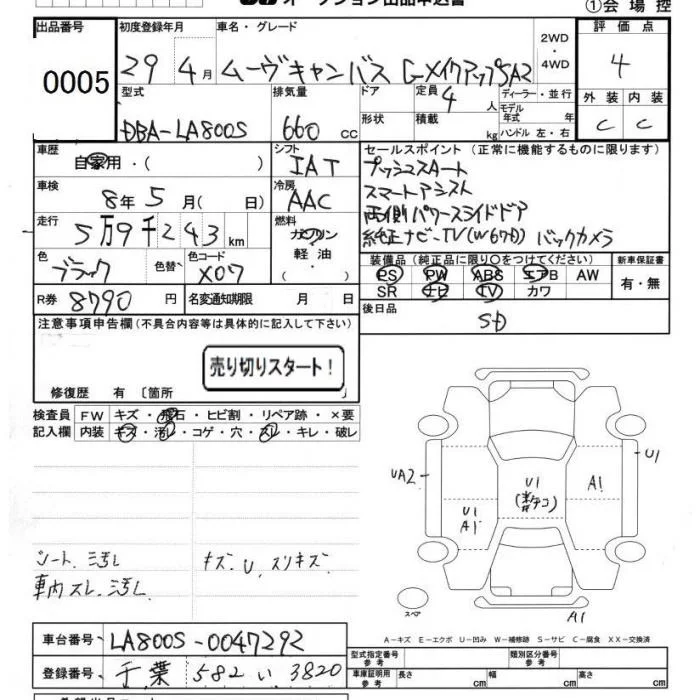 オークション出品申込書
①会場控
出品番号
0005
初度登録年月
29年 4月
車名・グレード
ムーヴキャンバス GメイクアップSA2
2WD・4WD
評価点
4
外装 内装
C C
型式
DBA-LA800S
排気量
660 cc
ドア
形状
定員 4 人
積載 kg
ディーラー・並行
モデル年式 年
ハンドル 左・右
車歴
自家用・( )
シフト
IAT
車検
8年 5月( 日)
冷房
AAC
走行
5万9千243km
燃料
ガソリン
軽油・( )
色
ブラック
色替
色コード
X07
R券 8790 円
名変通知期限 月 日
セールスポイント(正常に機能するものに限ります)
プッシュスタート
スマートアシスト
両側パワースライドドア
純正ナビ-TV(W67D) バックカメラ
装備品(純正品に限り○をつけてください)
PS PW ABS エアB AW
SR ナビ TV カワ
新車保証書
有・無
後日品
SD
注意事項申告欄(不具合内容等は具体的に記入して下さい)
売り切りスタート!
修復歴 有〔箇所 〕
検査員記入欄
FW キズ・飛石・ヒビ割・リペア跡・×要
内装 キズ・汚レ・コゲ・穴・スレ・キレ・破レ
シート、汚レ
車内スレ、汚レ
キズ、U、スリキズ
UA2
U1
A1
U1
A1
U1
A1
A1
スペア
A-キズ E-エクボ U-凹み W-補修跡 S-サビ C-腐食 XX-交換済
車台番号 LA800S-0047292
登録番号 千葉 582 い 3820
型式指定番号 参考
類別区分番号 参考
車庫証明用 参考
長さ cm 幅 cm 高さ cm